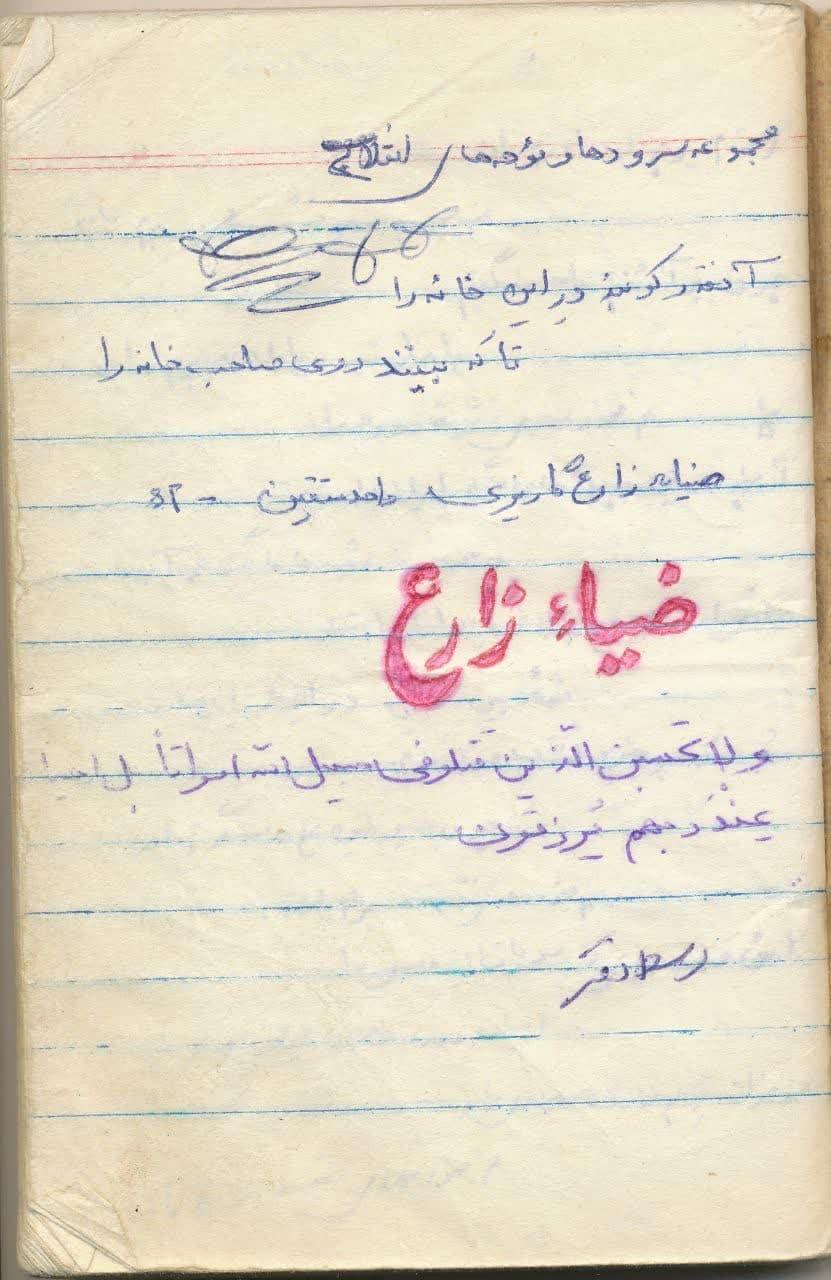 مجموعه سرودها و نوحه های انقلابی
آنقدر کوبند در این خانه را
تا که بینند روی صاحب خانه را
ضیاء زارع
ضیاء زارع
ولا تحسبن الّذین قتلو فی سبیل الله امواتاً بل احیا
عِنْدَ ربهم یُرزقون